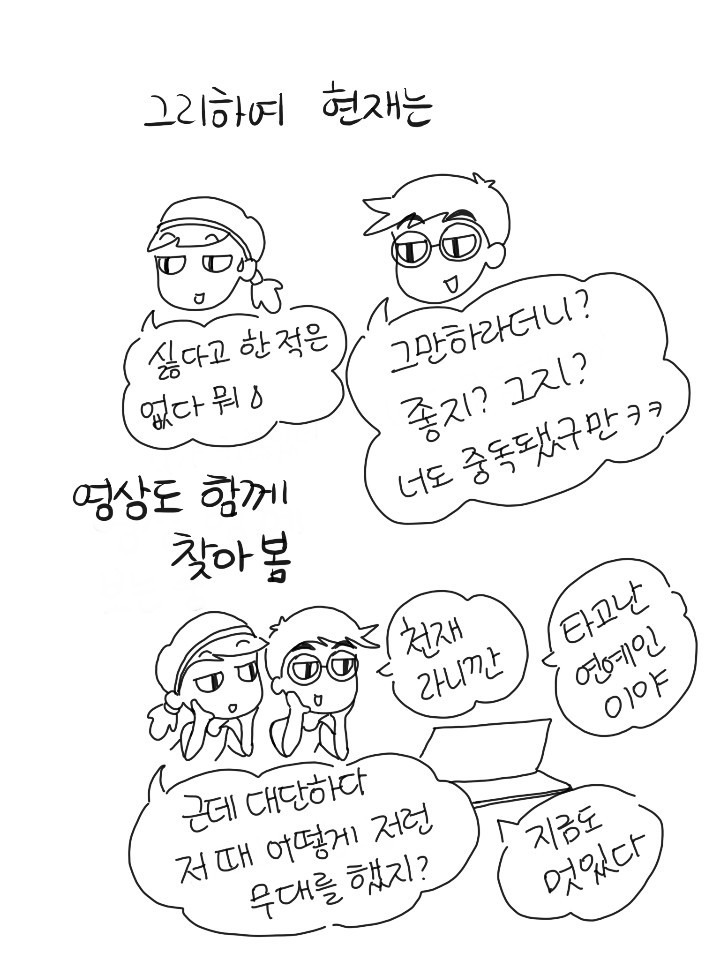 그리하여 현재는
싫다고 한 적은
없다 뭐
그만하라더니?
좋지? 그지?
너도 중독됐구만 ㅋㅋ
영상도 함께
찾아봄
천재
라니깐
타고난
연예인
이야
근데 대단하다
저 때 어떻게 저런
무대를 했지?
지금도
멋있다